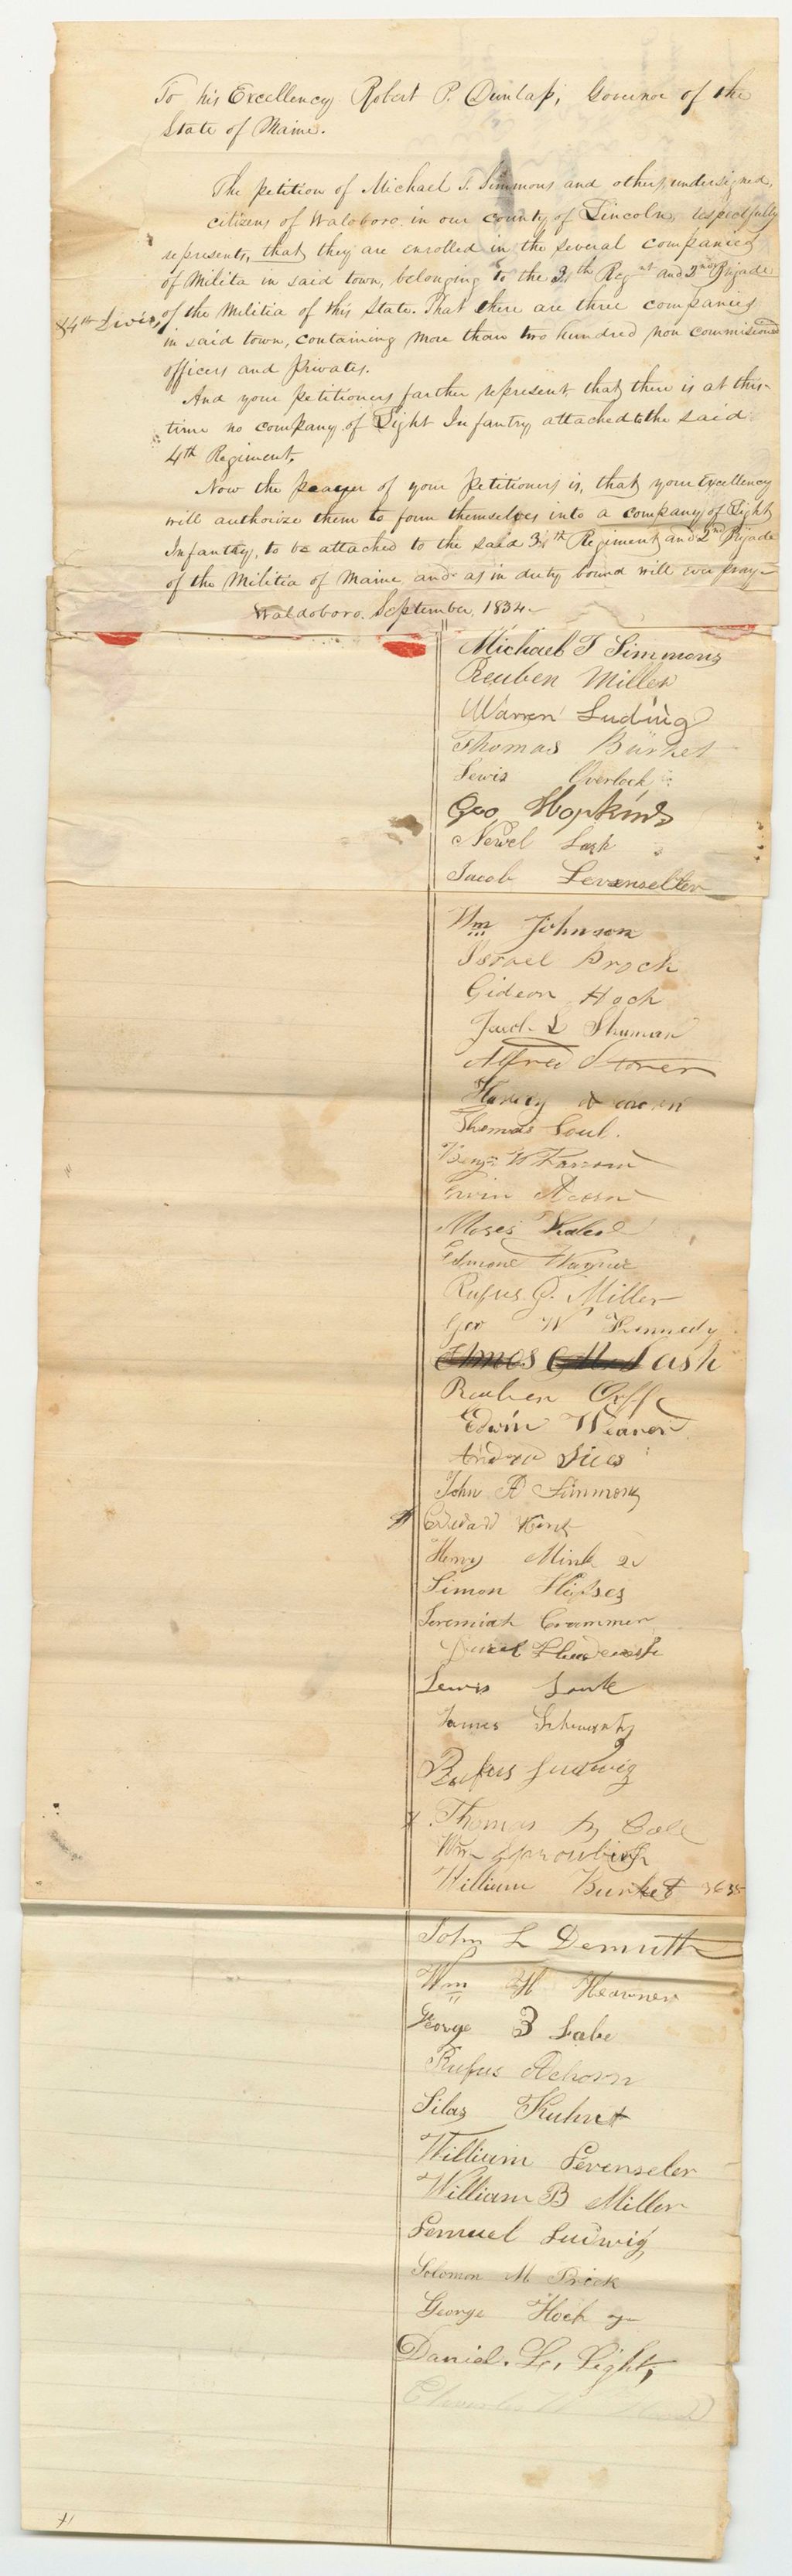 To his Excellency Robert P. Dunlap, Governor of the
State of Maine.
The petition of Michael T. Simmons and others, undersigned,
citizens of Waloboro in our county of Lincoln, respectfully
represents, that they are enrolled in the several companies
of Milita in said town, belonging to the 3 th Reg and 2nd Brijade
& 4th Divis, of the Militia of this State. That there are three companies
in said town, containing more than two hundred non commisioned
officers and privates.
And your petitioners farther represent, that there is at this
time no company of Light Infantry attached to the said
4th Regiment,
Now the prayer of your Petitioners is, that your Excellency
will authorize them to form themselves into a company of Light
Infantry, to be attached to the said 3 th Regiment and 2nd Brijade
of the Militia of Maine and as in duty bound will ever pray
Waldoboro. September, 1834
Michael T Simmons
Reuben Miller
Warren Ludwig
Thomas Burket
Lewis Overlock
Geo Hopkins
Newel Lash
Jacob Levenseller
Wm Johnson
Israel Proch
Gideon Hoch
L Shuman
Alfred Storer
Harvey
Thomas Soul.
Benj W Farrow
Acorn
Moses
Edmond Wagner
Rufus G. Miller
Geo W Kennedy
Amos Lash
Reuben Orff
Edwin Weaver
Andrew Sices
John A Simmons
Edward
Henry Mink 2d
Simon
Jeremiah Crammer
Lewis
James Schwartz
Rufus Ludwig
x Thomas Cole
Wm
William Burket
John L Demuth
Wm H Heavner
George B Labe
Rufus Achorn
Silas Kuhn
William Levenseler
William B Miller
Lemuel Ludwig
Solomon M Prock
George Hoch
Daniel. L. Light,
Charles